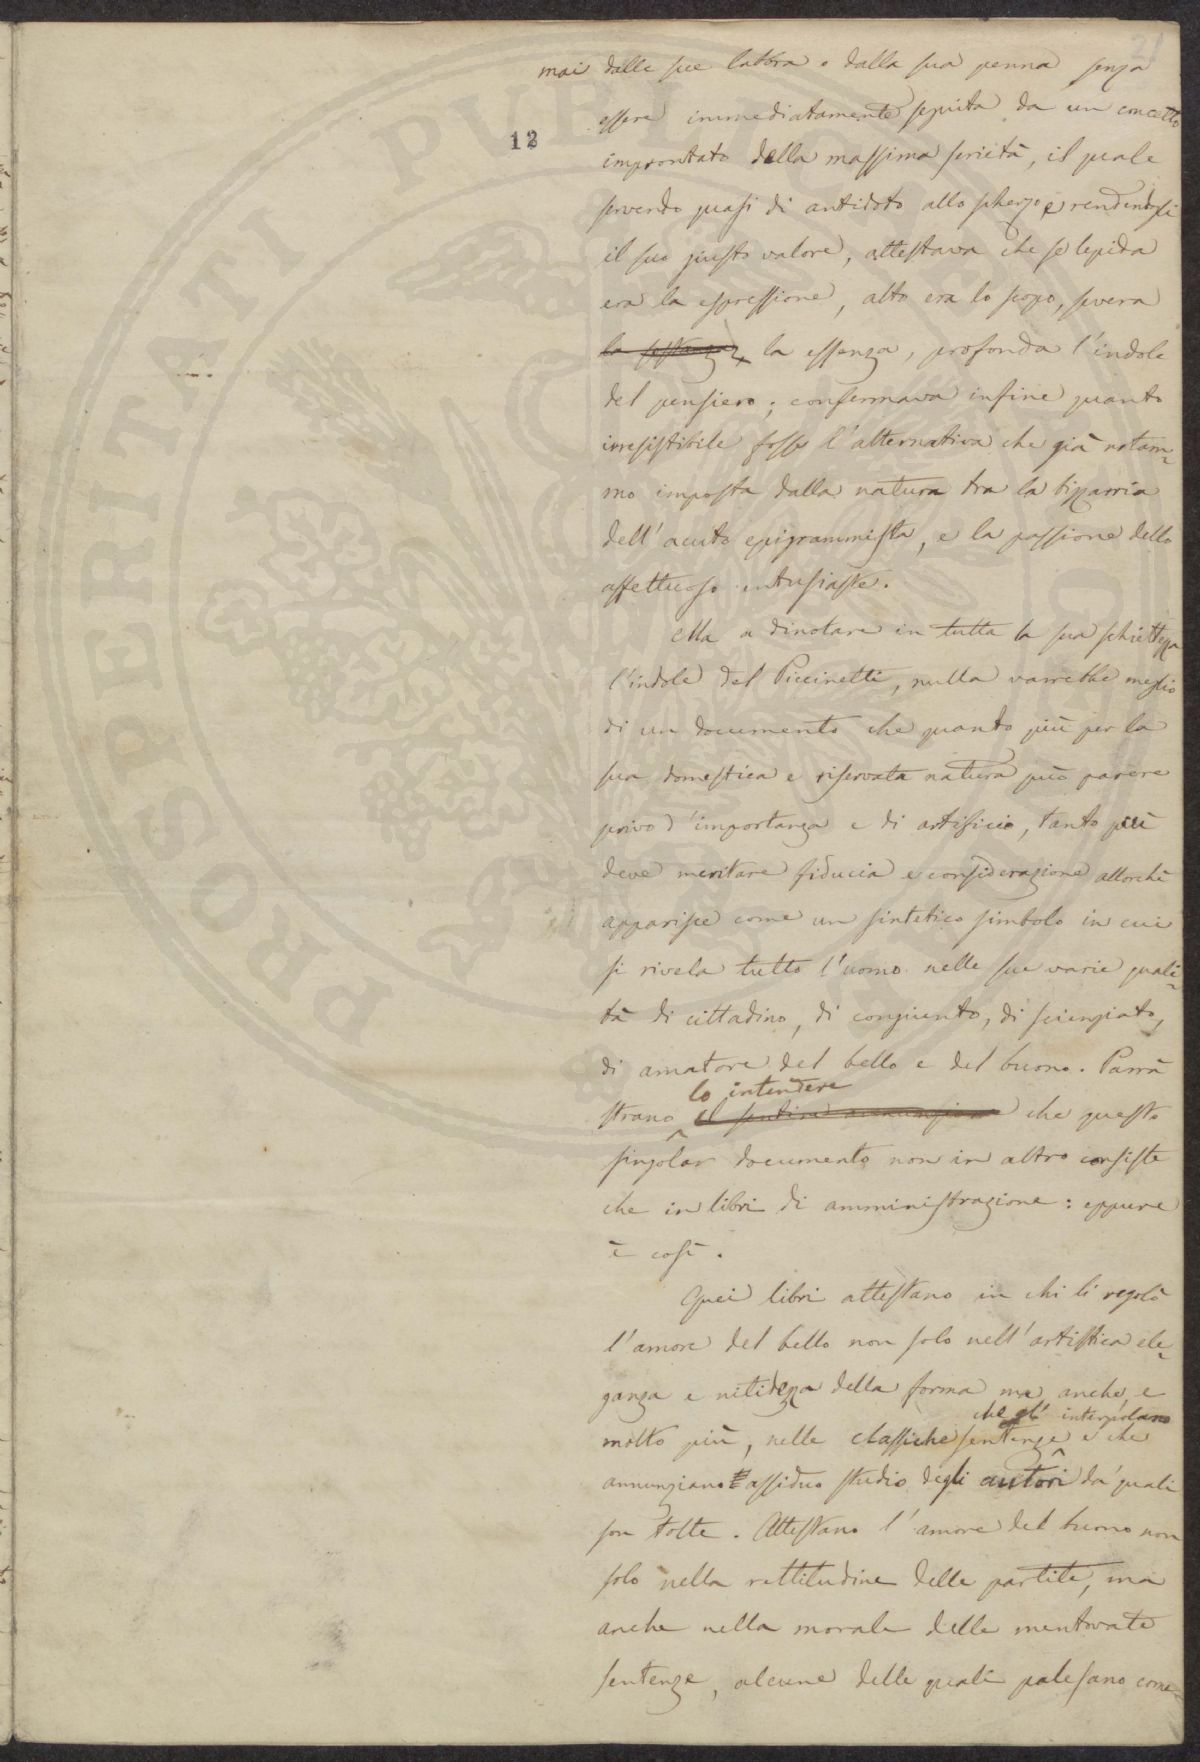 21
mai dalle sue labbra o dalla sua penna senza
essere immediatamente seguita da un concetto
12
improntato della massima serietà, il quale
servendo quasi di antidoto allo scherzo e rendendosi
il suo giusto valore, attestava che se lepida
era la espressione, alto era lo scopo, severa
la sostanza la essenza, profonda l'indole
del pensiero; confermava infine quanto
irresistibile fosse l'alternativa che già notam=
mo imposta dalla natura tra la bizzarria
dell'acuto epigrammista, e la passione dello
affettuoso entusiasta.
Ma a dinotare in tutta la sua schiettezza
l'indole del Piccinetti, nulla varrebbe meglio
di un documento che quanto più per la
sua domestica e riservata natura può parere
privo d'importanza e di artificio, tanto più
deve meritare fiducia e considerazione allorchè
apparisce come un sintetico simbolo in cui
si rivela tutto l'uomo nelle sue varie quali=
tà di cittadino, di congiunto, di scienziato,
di amatore del bello e del buono. Parrà
lo intendere
strano il sentire annunziare che questo
singolar documento non in altro consiste
che in libri di amministrazione: eppure
è così.
Quei libri attestano in chi li regolò
l'amore del bello non solo nell'artistica ele=
ganza e nitidezza della forma ma anche, e
che gl'interpolano
molto più, nelle classiche sentenze e che
annunziano assiduo studio degli autori da' quali
son tolte. Attestano l'amore del buono non
solo nella rettitudine delle partite, ma
anche nella morale delle mentovate
sentenze, alcune delle quali palesano come
PROSPERITATI PUBLICAE AUGENDAE